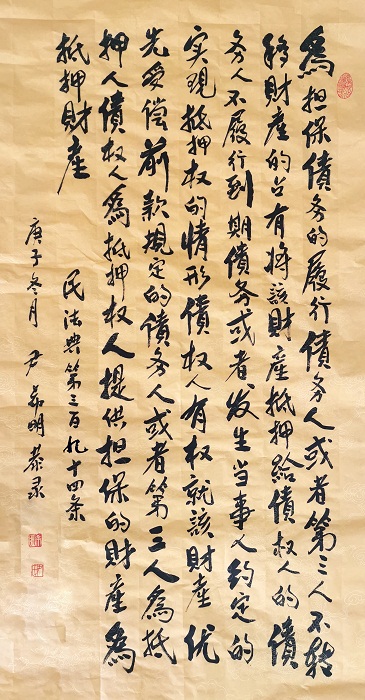 為担保債务的履行債务人或者第三人不转
移財產的占有将該財產抵押給債权人的債
务人不履行到期債务或者发生当事人约定的
实現抵押权的情形債权人有权就該財產优
先受偿前款規定的債务人或者第三人為抵
押人債权人為抵押权人提供担保的財產為
抵押財產
民法典第三百九十四条
庚子冬月 尹 明恭录